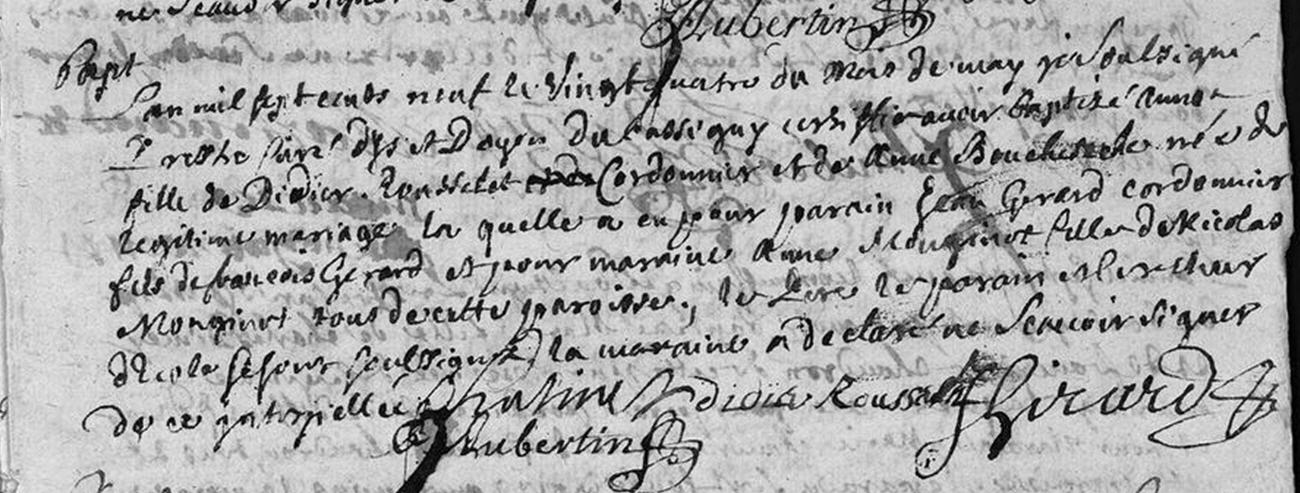 ne scavoir signer
Hubertin
Bapt
L'an mil sept cents neuf le vingt quatre du mois de may je soulsigné
Prestre curé d'Is et Doyen du Bassigny certiffie avoir baptizé Anne
fille de Didier Rousselet Cordonnier et de Anne née de
legitime mariage la quelle a eu pour parain Jean Gerard cordonnier
fils de francois Gerard et pour maraine Anne Monginot fille de Nicolas
Monginot tous de cette paroisse, le Pere le parain et le recteur
d'escole se sont soulsignés la maraine a declaré ne scavoir signer
de ce interpellée didier Rousselet Girard
Hubertin